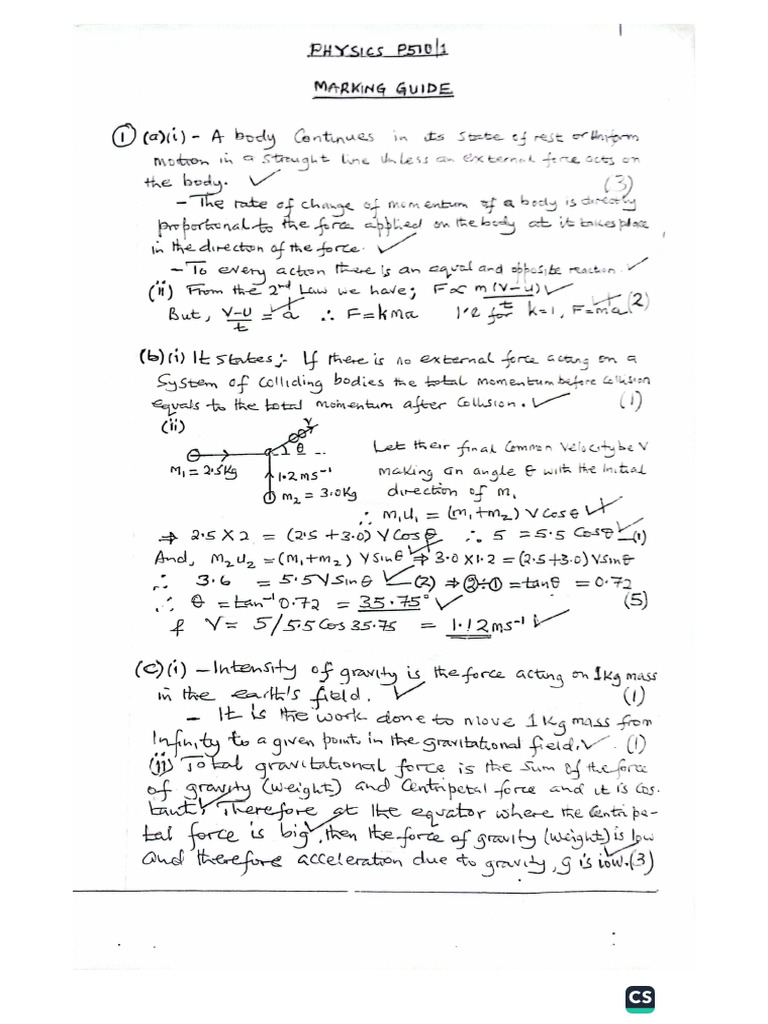 1
PHYSICS P510/1
MARKING GUIDE
① (a)(i) - A body Continues in its state of rest or Uniform
motion in a straught line Unless an external force acts on
the body. ✓ (3)
- The rate of change of momentum of a body is directly
proportional to the force applied on the body at it takes place
in the direction of the force. ✓
- To every action there is an equal and opposite reaction. ✓
(ii) From the 2nd Law we have; F∝ m(V-U)/t ✓
But, V-U/t = a ∴ F=kma i.e for k=1, F=ma (2)
(b)(i) It states;- If there is no external force acting on a
System of Colliding bodies the total momentum before Collusion
equals to the total momentum after Collusion. ✓ (1)
(ii)
V
θ
M₁ = 2.5kg
1.2ms⁻¹
m₂ = 3.0kg
Let their final Common Velocity be V
making an angle θ with the initial
direction of m₁
∴ m₁u₁ = (m₁+m₂) V cosθ ✓
⇒ 2.5 X 2 = (2.5 + 3.0) V Cos θ ∴ 5 = 5.5 Cosθ ✓ (1)
And, M₂U₂ = (m₁+m₂) V sinθ ✓ ⇒ 3.0 X 1.2 = (2.5+3.0) V sinθ
∴ 3.6 = 5.5 V Sin θ ✓ (2) ⇒ ②÷① = tanθ = 0.72
∴ θ = tan⁻¹ 0.72 = 35.75° ✓ (5)
& V = 5/5.5 Cos 35.75 = 1.12 ms⁻¹ ✓
(C)(i) - Intensity of gravity is the force acting on 1kg mass
in the earth's field. ✓ (1)
- It is the work done to move 1kg mass from
Infinity to a given point in the gravitational field. ✓ (1)
(ii) Total gravitational force is the sum of the force
of gravity (weight) and Centripetal force and it is Cos-
tant. ✓ Therefore at the equator where the Centripe-
tal force is big ✓, then the force of gravity (weight) is low
and therefore acceleration due to gravity, g is low. ✓ (3)
CS